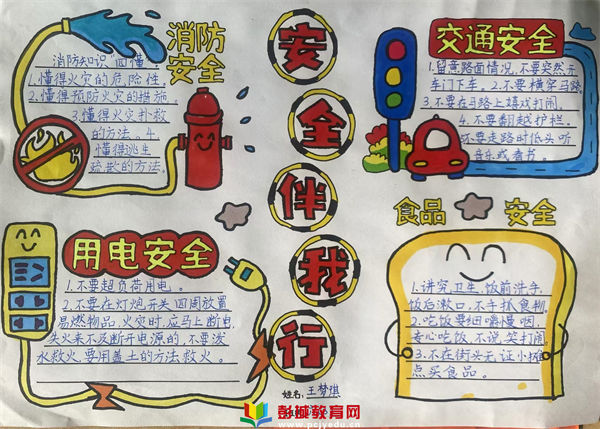 消防
安全
消防知识"四懂":
1.懂得火灾的危险性.
2.懂得预防火灾的措施.
3.懂得火灾扑救
的方法. 4.
懂得逃生
疏散的方法.
安全伴我行
交通安全
1.留意路面情况,不要突然开
车门下车。2.不要横穿马路
3.不要在马路上嬉戏打闹.
4.不要翻越护栏.
不要走路时低头听
音乐或看书。
用电安全
1.不要超负荷用电。
2.不要在灯炮开关四周放置
易燃物品,火灾时,应马上断电,
失火来不及断开电源的,不要泼
水救火要用盖土的方法救火。
食品安全
1.讲究卫生,饭前洗手,
饭后漱口,不手抓食物.
2.吃饭要细嚼慢咽
专心吃饭,不说,笑打闹.
3.不在街头无证小摊
点买食品。
姓名:王梦琪
彭城教育网
www.pcjyedu.cn